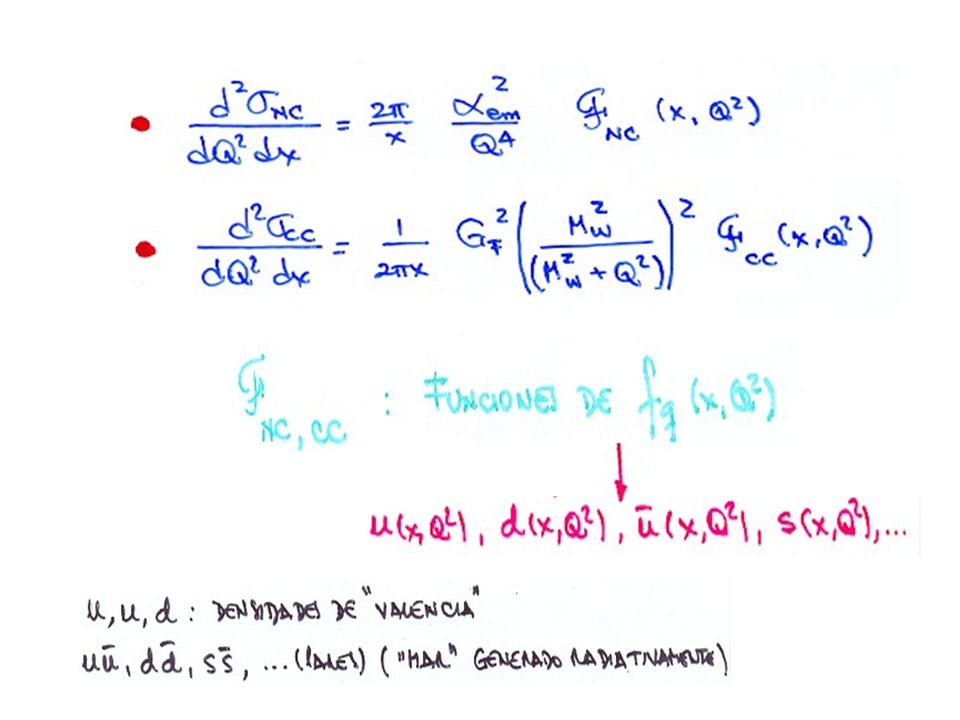 • d²σ_NC / dQ² dx = 2π/x α²_em/Q⁴ ℱ_NC (x, Q²)
• d²σ_CC / dQ² dx = 1/2πx G_F² (M_W²/(M_W² + Q²))² ℱ_CC (x, Q²)
ℱ_NC, CC : FUNCIONES DE f_q (x, Q²)
↓
u(x,Q²), d(x,Q²), ū(x,Q²), s(x,Q²),...
u, u, d : DENSIDADES DE "VALENCIA"
uū, dd̄, ss̄, ... (PARES) ("MAR" GENERADO RADIATIVAMENTE)